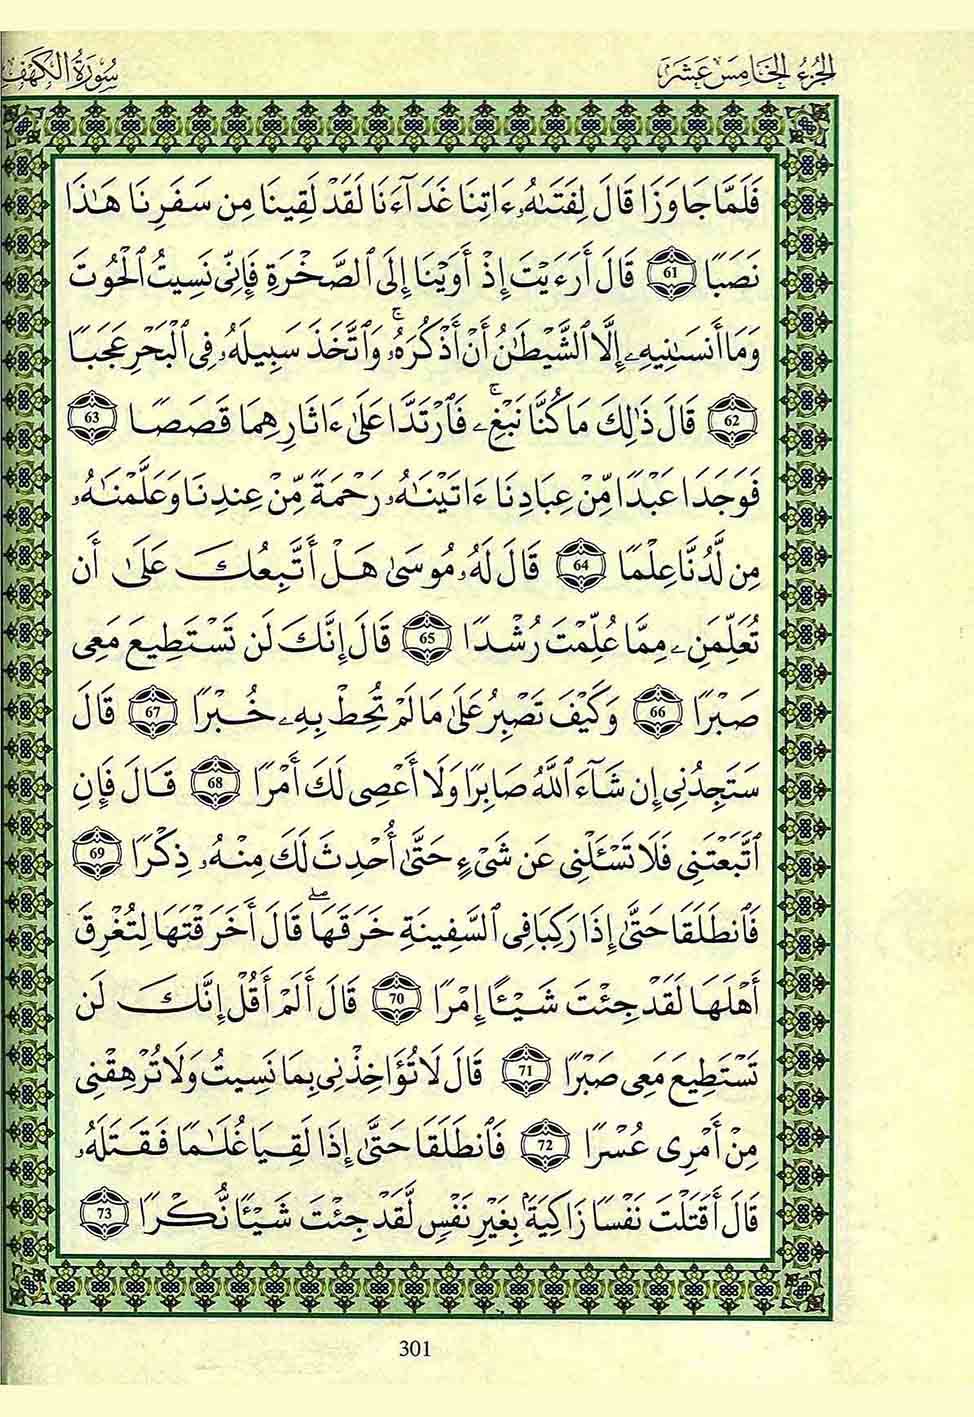 الجزء الخامس عشر
سورة الكهف
فَلَمَّا جَاوَزَا قَالَ لِفَتَىٰهُ ءَاتِنَا غَدَآءَنَا لَقَدْ لَقِينَا مِن سَفَرِنَا هَـٰذَا
نَصَبًا 61 قَالَ أَرَءَيْتَ إِذْ أَوَيْنَا إِلَى ٱلصَّخْرَةِ فَإِنِّى نَسِيتُ ٱلْحُوتَ
وَمَا أَنسَـٰنِيهِۦ إِلَّا ٱلشَّيْطَـٰنُ أَنْ أَذْكُرَهُۥۚ وَٱتَّخَذَ سَبِيلَهُۥ فِى ٱلْبَحْرِ عَجَبًا
62 قَالَ ذَٰلِكَ مَا كُنَّا نَبْغِۦۚ فَٱرْتَدَّا عَلَىٰ ءَاثَارِهِمَا قَصَصًا 63
فَوَجَدَا عَبْدًا مِّنْ عِبَادِنَا ءَاتَيْنَـٰهُۥ رَحْمَةً مِّنْ عِندِنَا وَعَلَّمْنَـٰهُۥ
مِن لَّدُنَّا عِلْمًا 64 قَالَ لَهُۥ مُوسَىٰ هَلْ أَتَّبِعُكَ عَلَىٰ أَن
تُعَلِّمَنِۦ مِمَّا عُلِّمْتَ رُشْدًا 65 قَالَ إِنَّكَ لَن تَسْتَطِيعَ مَعِى
صَبْرًا 66 وَكَيْفَ تَصْبِرُ عَلَىٰ مَا لَمْ تُحِطْ بِهِۦ خُبْرًا 67 قَالَ
سَتَجِدُنِى إِن شَآءَ ٱللَّهُ صَابِرًا وَلَا أَعْصِى لَكَ أَمْرًا 68 قَالَ فَإِنِ
ٱتَّبَعْتَنِى فَلَا تَسْـَٔلْنِى عَن شَىْءٍ حَتَّىٰ أُحْدِثَ لَكَ مِنْهُۥ ذِكْرًا 69
فَٱنطَلَقَا حَتَّىٰ إِذَا رَكِبَا فِى ٱلسَّفِينَةِ خَرَقَهَاۖ قَالَ أَخَرَقْتَهَا لِتُغْرِقَ
أَهْلَهَا لَقَدْ جِئْتَ شَيْـًٔا إِمْرًا 70 قَالَ أَلَمْ أَقُلْ إِنَّكَ لَن
تَسْتَطِيعَ مَعِى صَبْرًا 71 قَالَ لَا تُؤَاخِذْنِى بِمَا نَسِيتُ وَلَا تُرْهِقْنِى
مِنْ أَمْرِى عُسْرًا 72 فَٱنطَلَقَا حَتَّىٰ إِذَا لَقِيَا غُلَـٰمًا فَقَتَلَهُۥ
قَالَ أَقَتَلْتَ نَفْسًا زَاكِيَةً بِغَيْرِ نَفْسٍ لَّقَدْ جِئْتَ شَيْـًٔا نُّكْرًا 73
301